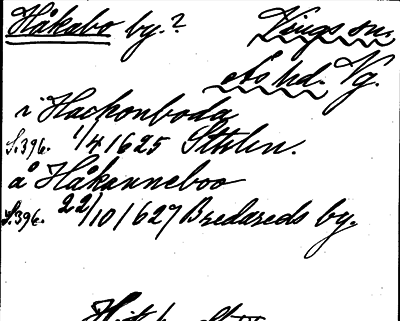 Håkabo by.? Kings sn.
Ås hd. Vg.
i Hackonboda
S.396. 1/4 1625 Sthlm.
å Håkanneboo
S.396. 22/10 1627 Bredareds by.